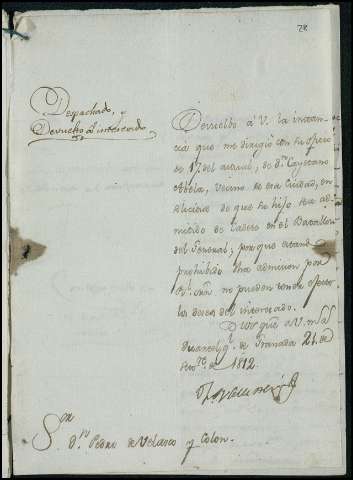 28
Despachado, y
Devuelto al interesado
Devuelvo á V. la instan-
cia que me dirigió con su oficio
de 17 del actual, de Dn. Cayetano
Abela, Vecino de esa Ciudad, en
solicitud de que su hijo sea ad-
mitido de Cadete en el Batallon
del General; porque estando
prohibida tal admision por
Rl. orn. no pueden tener efecto
los deseos del interesado.
Dios gue. á V. ms. as.
Quartel gl. de Granada 21 de
de 1812.
Sor. Dn. Pedro de Velasco y Colon.